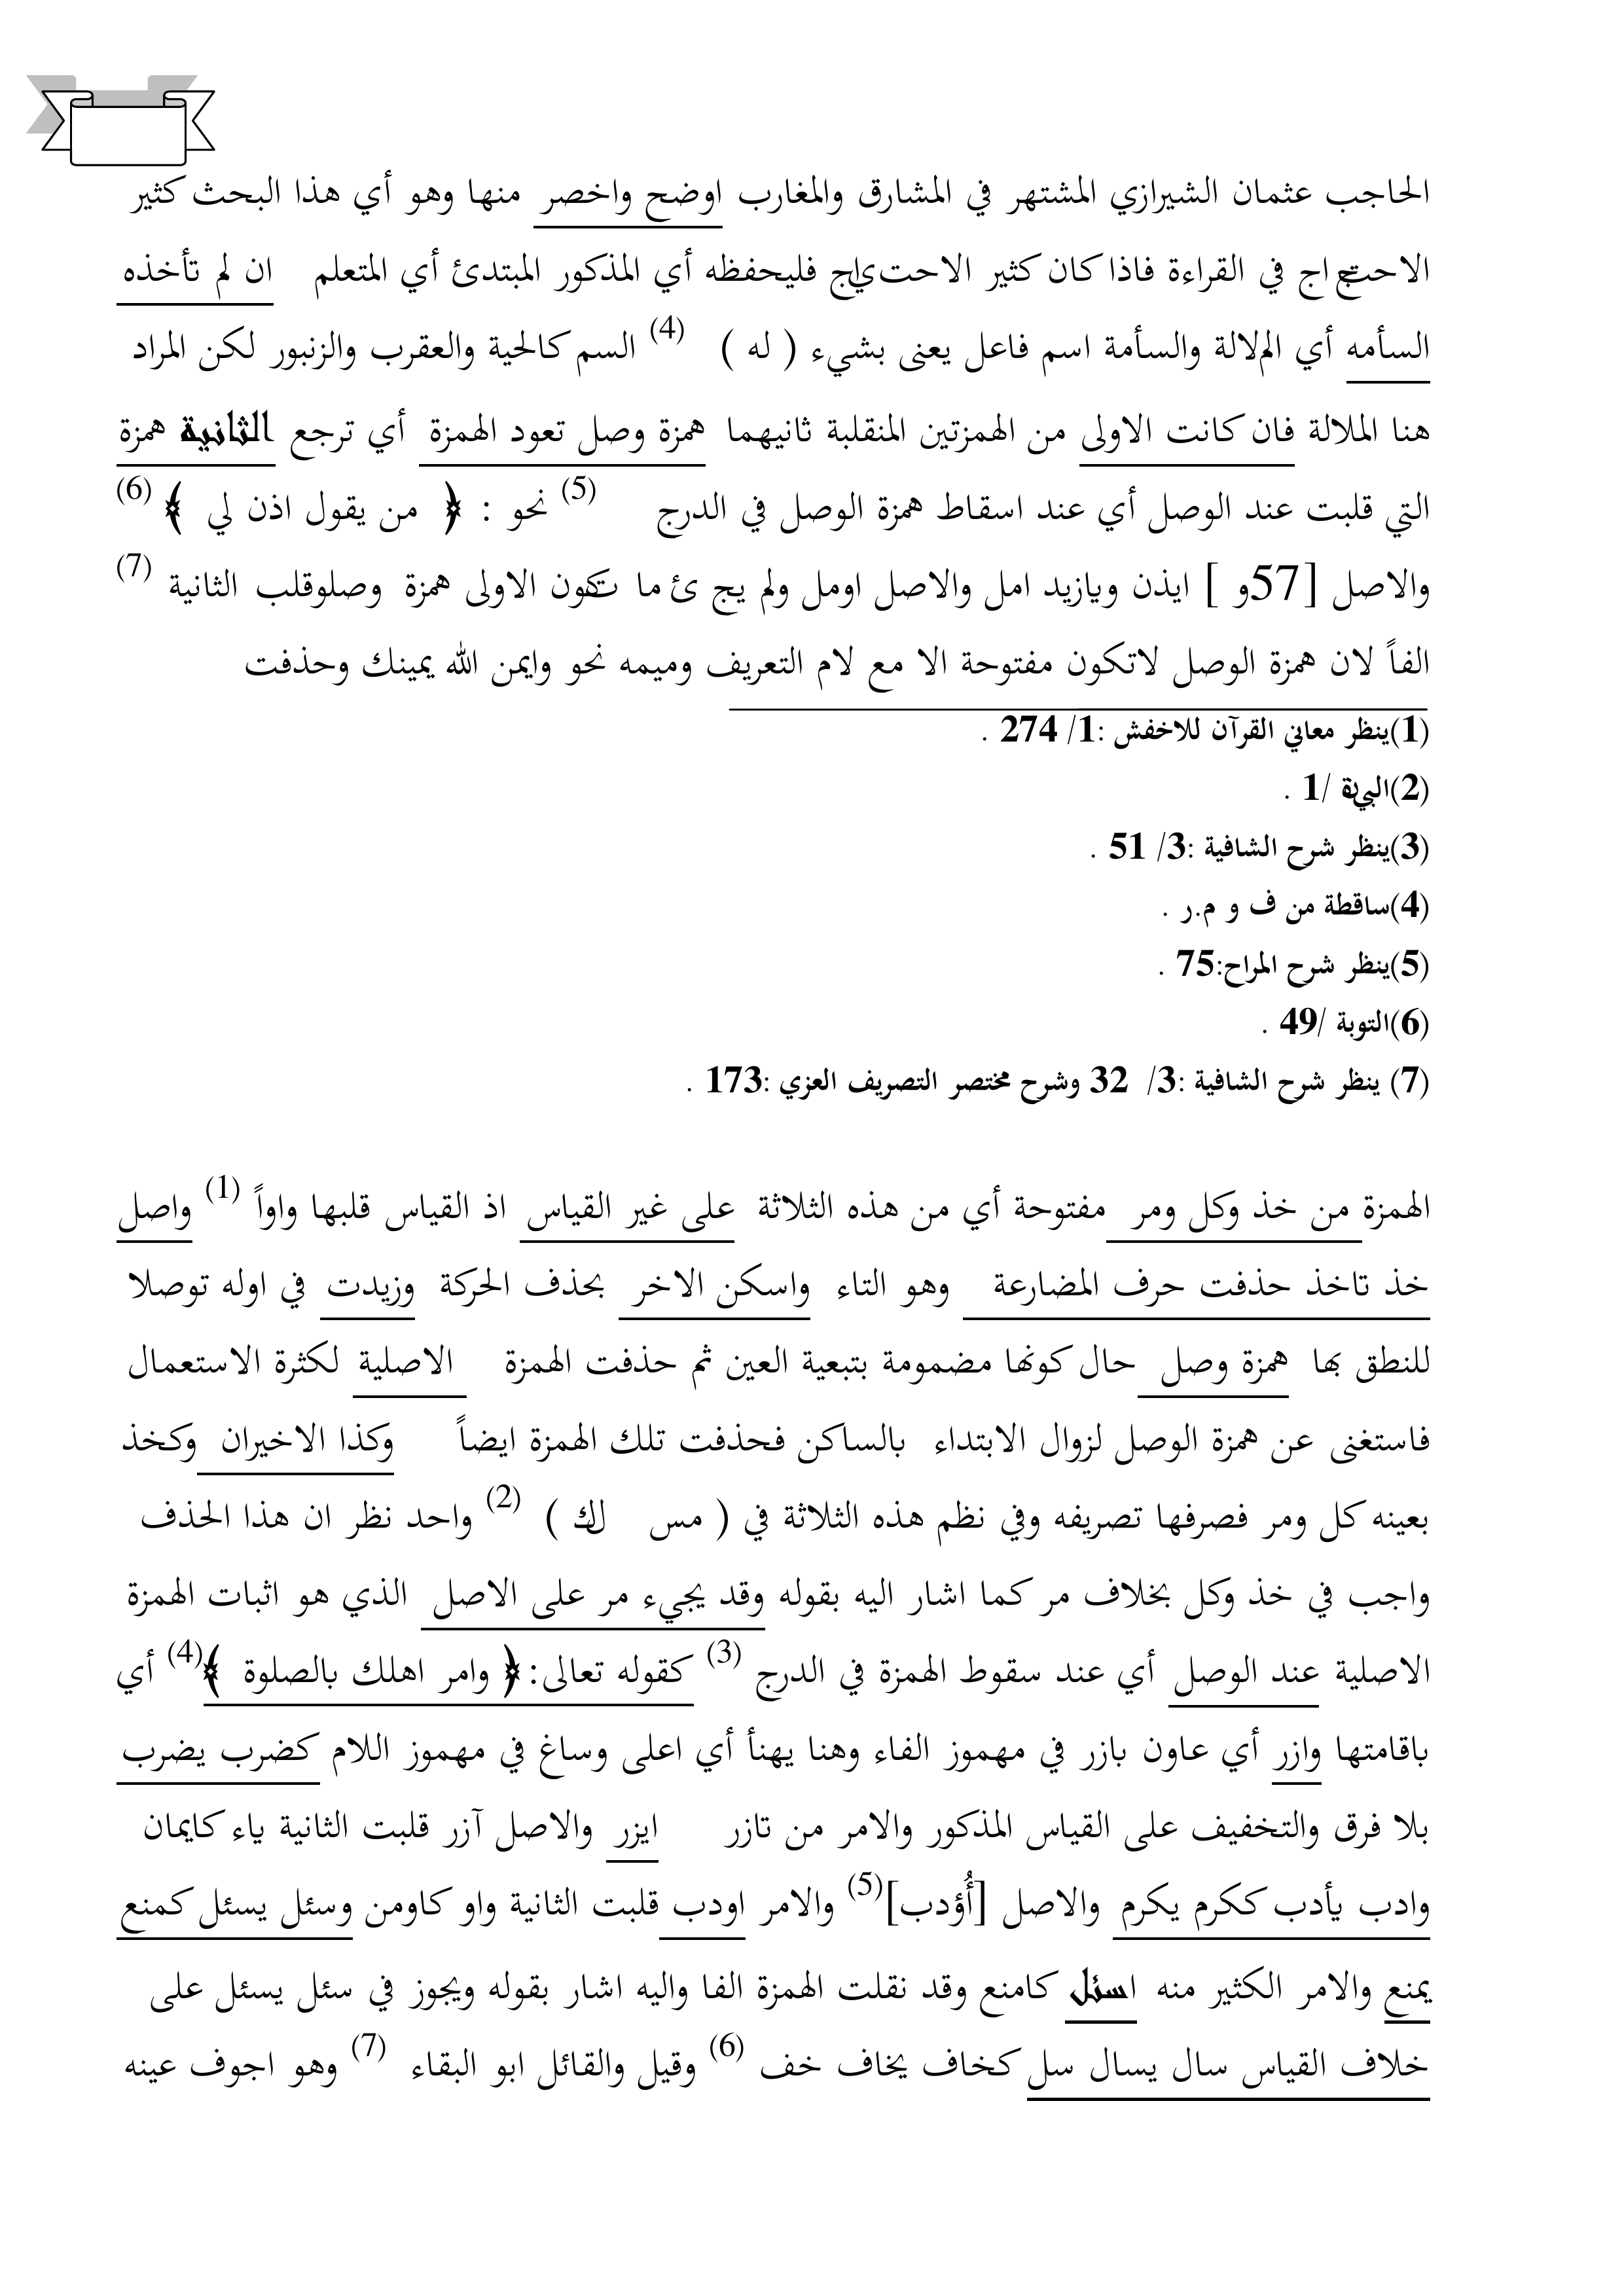 الحاجب عثمان الشيرازي المشتهر في المشارق والمغارب اوضح واخصر منها وهو أي هذا البحث كثير
الاحتياج في القراءة فاذا كان كثير الاحتياج فليحفظه أي المذكور المبتدئ أي المتعلم ان لم تأخذه
السأمه أي الملالة والسأمة اسم فاعل يعنى بشيء ( له ) (4) السم كالحية والعقرب والزنبور لكن المراد
هنا الملالة فان كانت الاولى من الهمزتين المنقلبة ثانيهما همزة وصل تعود الهمزة أي ترجع الثانية همزة
التي قلبت عند الوصل أي عند اسقاط همزة الوصل في الدرج (5) نحو : ﴿ من يقول اذن لي ﴾ (6)
والاصل [57و ] ايذن ويازيد امل والاصل اومل ولم يج ئ ما تكون الاولى همزة وصلوقلب الثانية (7)
الفاً لان همزة الوصل لاتكون مفتوحة الا مع لام التعريف وميمه نحو وايمن الله يمينك وحذفت
(1)ينظر معاني القرآن للاخفش :1/ 274 .
(2)البينة /1 .
(3)ينظر شرح الشافية :3/ 51 .
(4)ساقطة من ف و م.ر .
(5)ينظر شرح المراح:75 .
(6)التوبة /49 .
(7) ينظر شرح الشافية :3/ 32 وشرح مختصر التصريف العزي :173 .
الهمزة من خذ وكل ومر مفتوحة أي من هذه الثلاثة على غير القياس اذ القياس قلبها واواً (1) واصل
خذ تاخذ حذفت حرف المضارعة وهو التاء واسكن الاخر بحذف الحركة وزيدت في اوله توصلا
للنطق بها همزة وصل حال كونها مضمومة بتبعية العين ثم حذفت الهمزة الاصلية لكثرة الاستعمال
فاستغنى عن همزة الوصل لزوال الابتداء بالساكن فحذفت تلك الهمزة ايضاً وكذا الاخيران وكخذ
بعينه كل ومر فصرفها تصريفه وفي نظم هذه الثلاثة في ( مس لك ) (2) واحد نظر ان هذا الحذف
واجب في خذ وكل بخلاف مر كما اشار اليه بقوله وقد يجيء مر على الاصل الذي هو اثبات الهمزة
الاصلية عند الوصل أي عند سقوط الهمزة في الدرج (3) كقوله تعالى: ﴿ وامر اهلك بالصلوة ﴾(4) أي
باقامتها وازر أي عاون بازر في مهموز الفاء وهنا يهنأ أي اعلى وساغ في مهموز اللام كضرب يضرب
بلا فرق والتخفيف على القياس المذكور والامر من تازر ايزر والاصل آزر قلبت الثانية ياء كايمان
وادب يأدب ككرم يكرم والاصل [أُؤدب](5) والامر اودب قلبت الثانية واو كاومن وسئل يسئل كمنع
يمنع والامر الكثير منه اسئل كامنع وقد نقلت الهمزة الفا واليه اشار بقوله ويجوز في سئل يسئل على
خلاف القياس سال يسال سل كخاف يخاف خف (6) وقيل والقائل ابو البقاء (7) وهو اجوف عينه